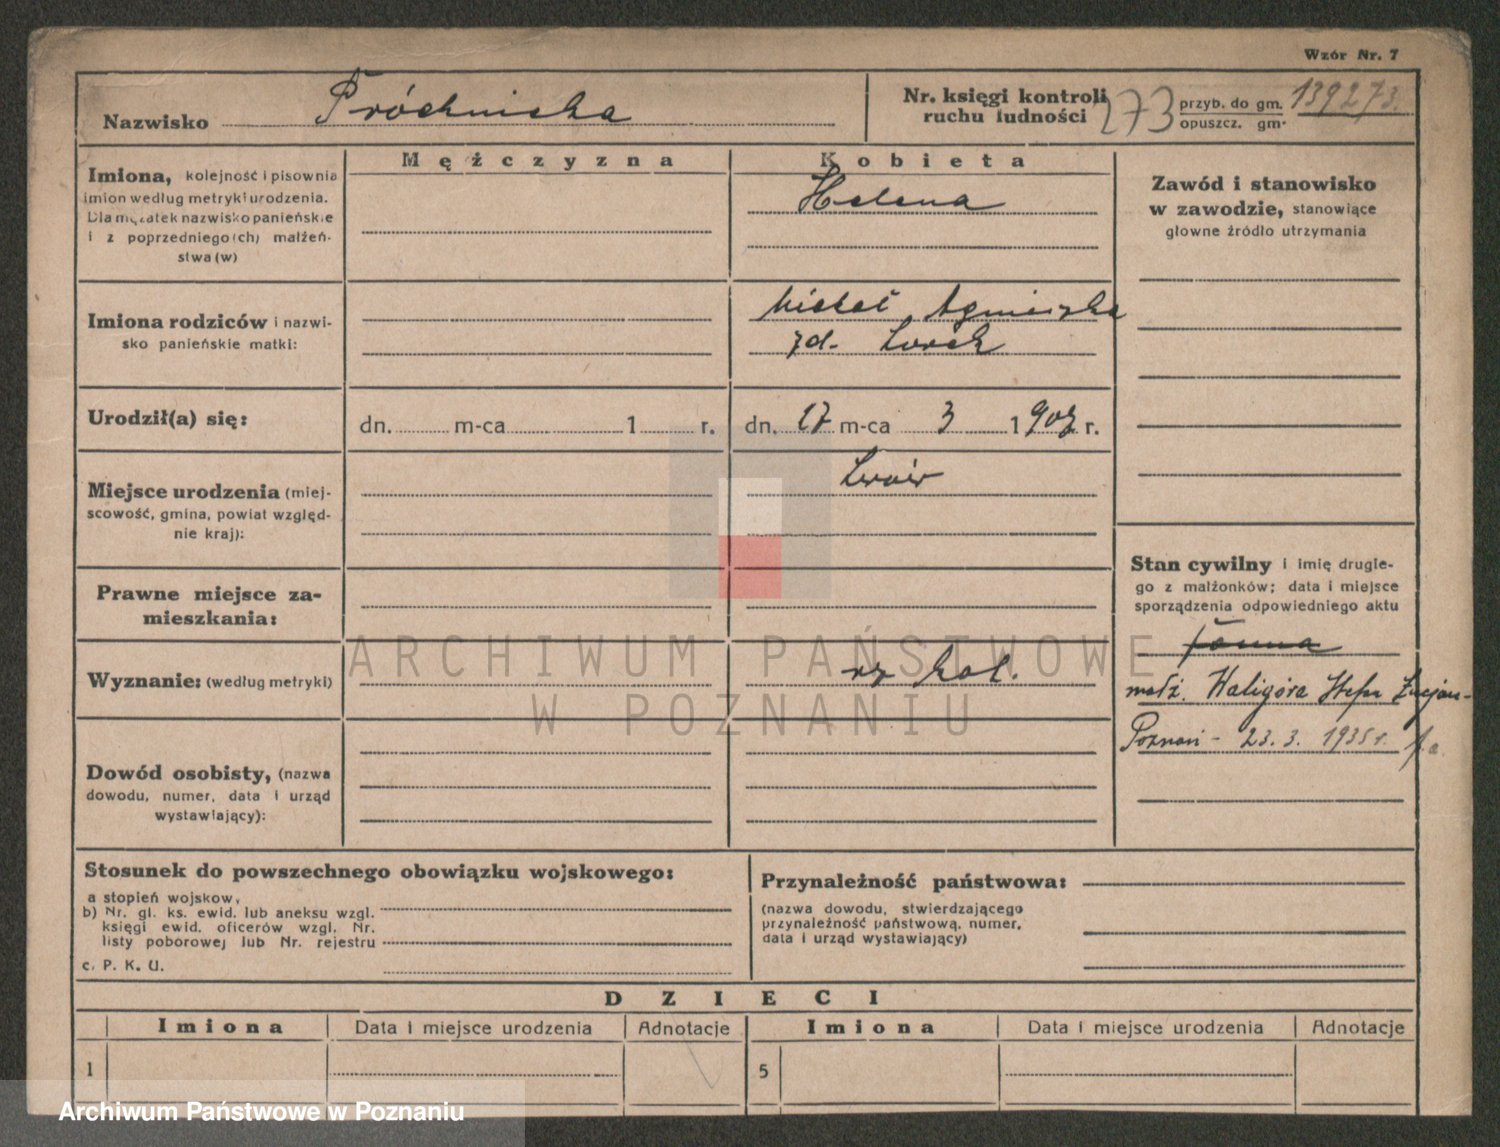 Wzór Nr. 7
Nazwisko Próchnicka
Nr. księgi kontroli ruchu ludności 273
przyb. do gm. 139273.
opuszcz. gm.
Mężczyzna
Kobieta
Imiona, kolejność i pisownia
imion według metryki urodzenia.
Dla mężatek nazwisko panieńskie
i z poprzedniego(ch) małżeń-
stwa(w)
Helena
Zawód i stanowisko
w zawodzie, stanowiące
głowne źródło utrzymania
Imiona rodziców i nazwi-
sko panieńskie matki:
Michał Agnieszka
zd. Lorek
Urodził(a) się:
dn. m-ca 1 r.
dn. 17 m-ca 3 1907 r.
Miejsce urodzenia (miej-
scowość, gmina, powiat względ-
nie kraj):
Lwów
Prawne miejsce za-
mieszkania:
Stan cywilny i imię drugie-
go z małżonków; data i miejsce
sporządzenia odpowiedniego aktu
małż. Waligóra Stefan
Poznań - 23. 3. 1935 r.
Wyznanie: (według metryki)
rz kat.
Dowód osobisty, (nazwa
dowodu, numer, data i urząd
wystawiający):
Stosunek do powszechnego obowiązku wojskowego:
a stopień wojskow,
b) Nr. gl. ks. ewid. lub aneksu wzgl.
księgi ewid. oficerów wzgl. Nr.
listy poborowej lub Nr. rejestru
c. P. K. U.
Przynależność państwowa:
(nazwa dowodu, stwierdzającego
przynależność państwową, numer,
data i urząd wystawiający)
DZIECI
Imiona Data i miejsce urodzenia Adnotacje Imiona Data i miejsce urodzenia Adnotacje
1 5
ARCHIWUM PAŃSTWOWE
W POZNANIU
Archiwum Państwowe w Poznaniu